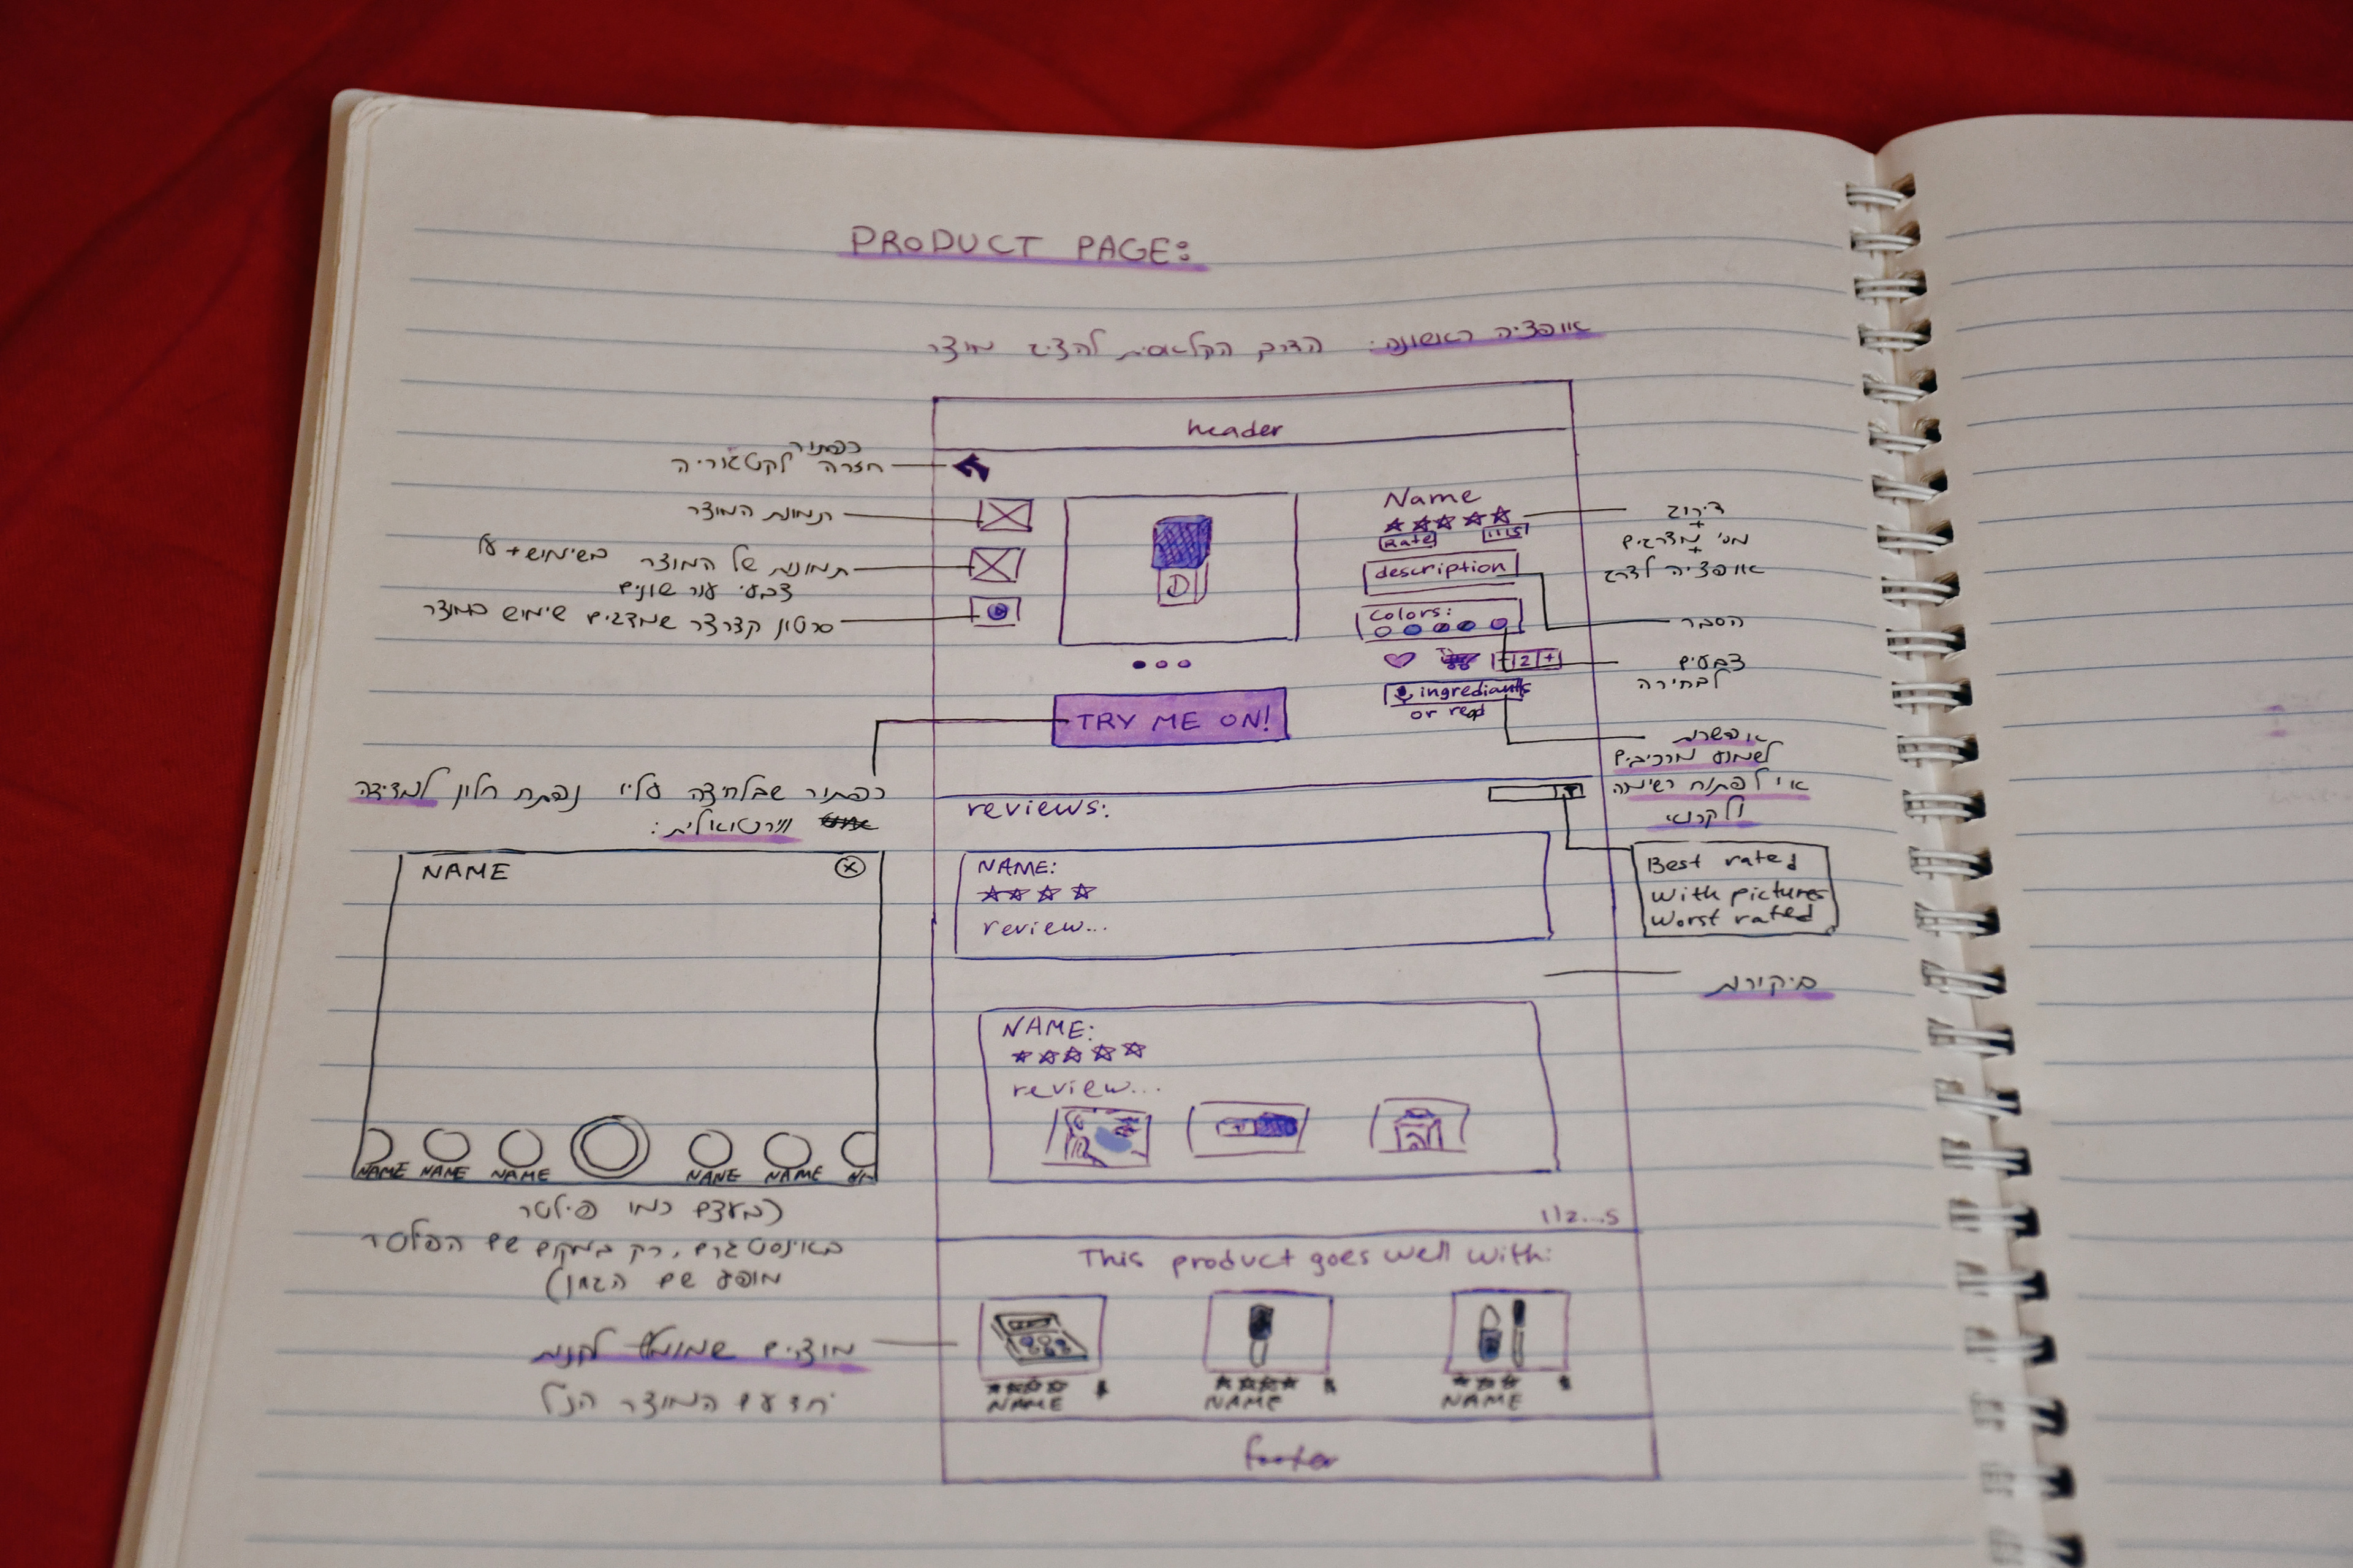 PRODUCT PAGE:
אופציה ראשונה: הדרך הקלאסית להציג מוצר
header
כפתור
חזרה לקטגוריה
תמונת המוצר
תמונות של המוצר בשימוש + על
צבעי עור שונים
סרטון קצרצר שמדגים שימוש במוצר
Name
Rate
description
colors:
2 +
ingrediants
or read
דירוג
+
מס' מדרגים
+
אופציה לדרג
הסבר
צבעים
לבחירה
אפשרות
לשמוע מרכיבים
או לפתוח רשימה
ולקרוא
TRY ME ON!
כפתור שבלחיצה עליו נפתח חלון למדידה
וירטואלית:
NAME
NAME NAME NAME NAME NAME
(בעצם כמו פילטר
באינסטגרם, רק במקום שם הפילטר
מופיע שם הגוון)
reviews:
Best rated
With pictures
Worst rated
NAME:
review...
ביקורות
NAME:
review...
1 2...5
This product goes well with:
NAME NAME NAME
מוצרים שמומלץ לקנות
יחד עם המוצר הנ"ל
footer